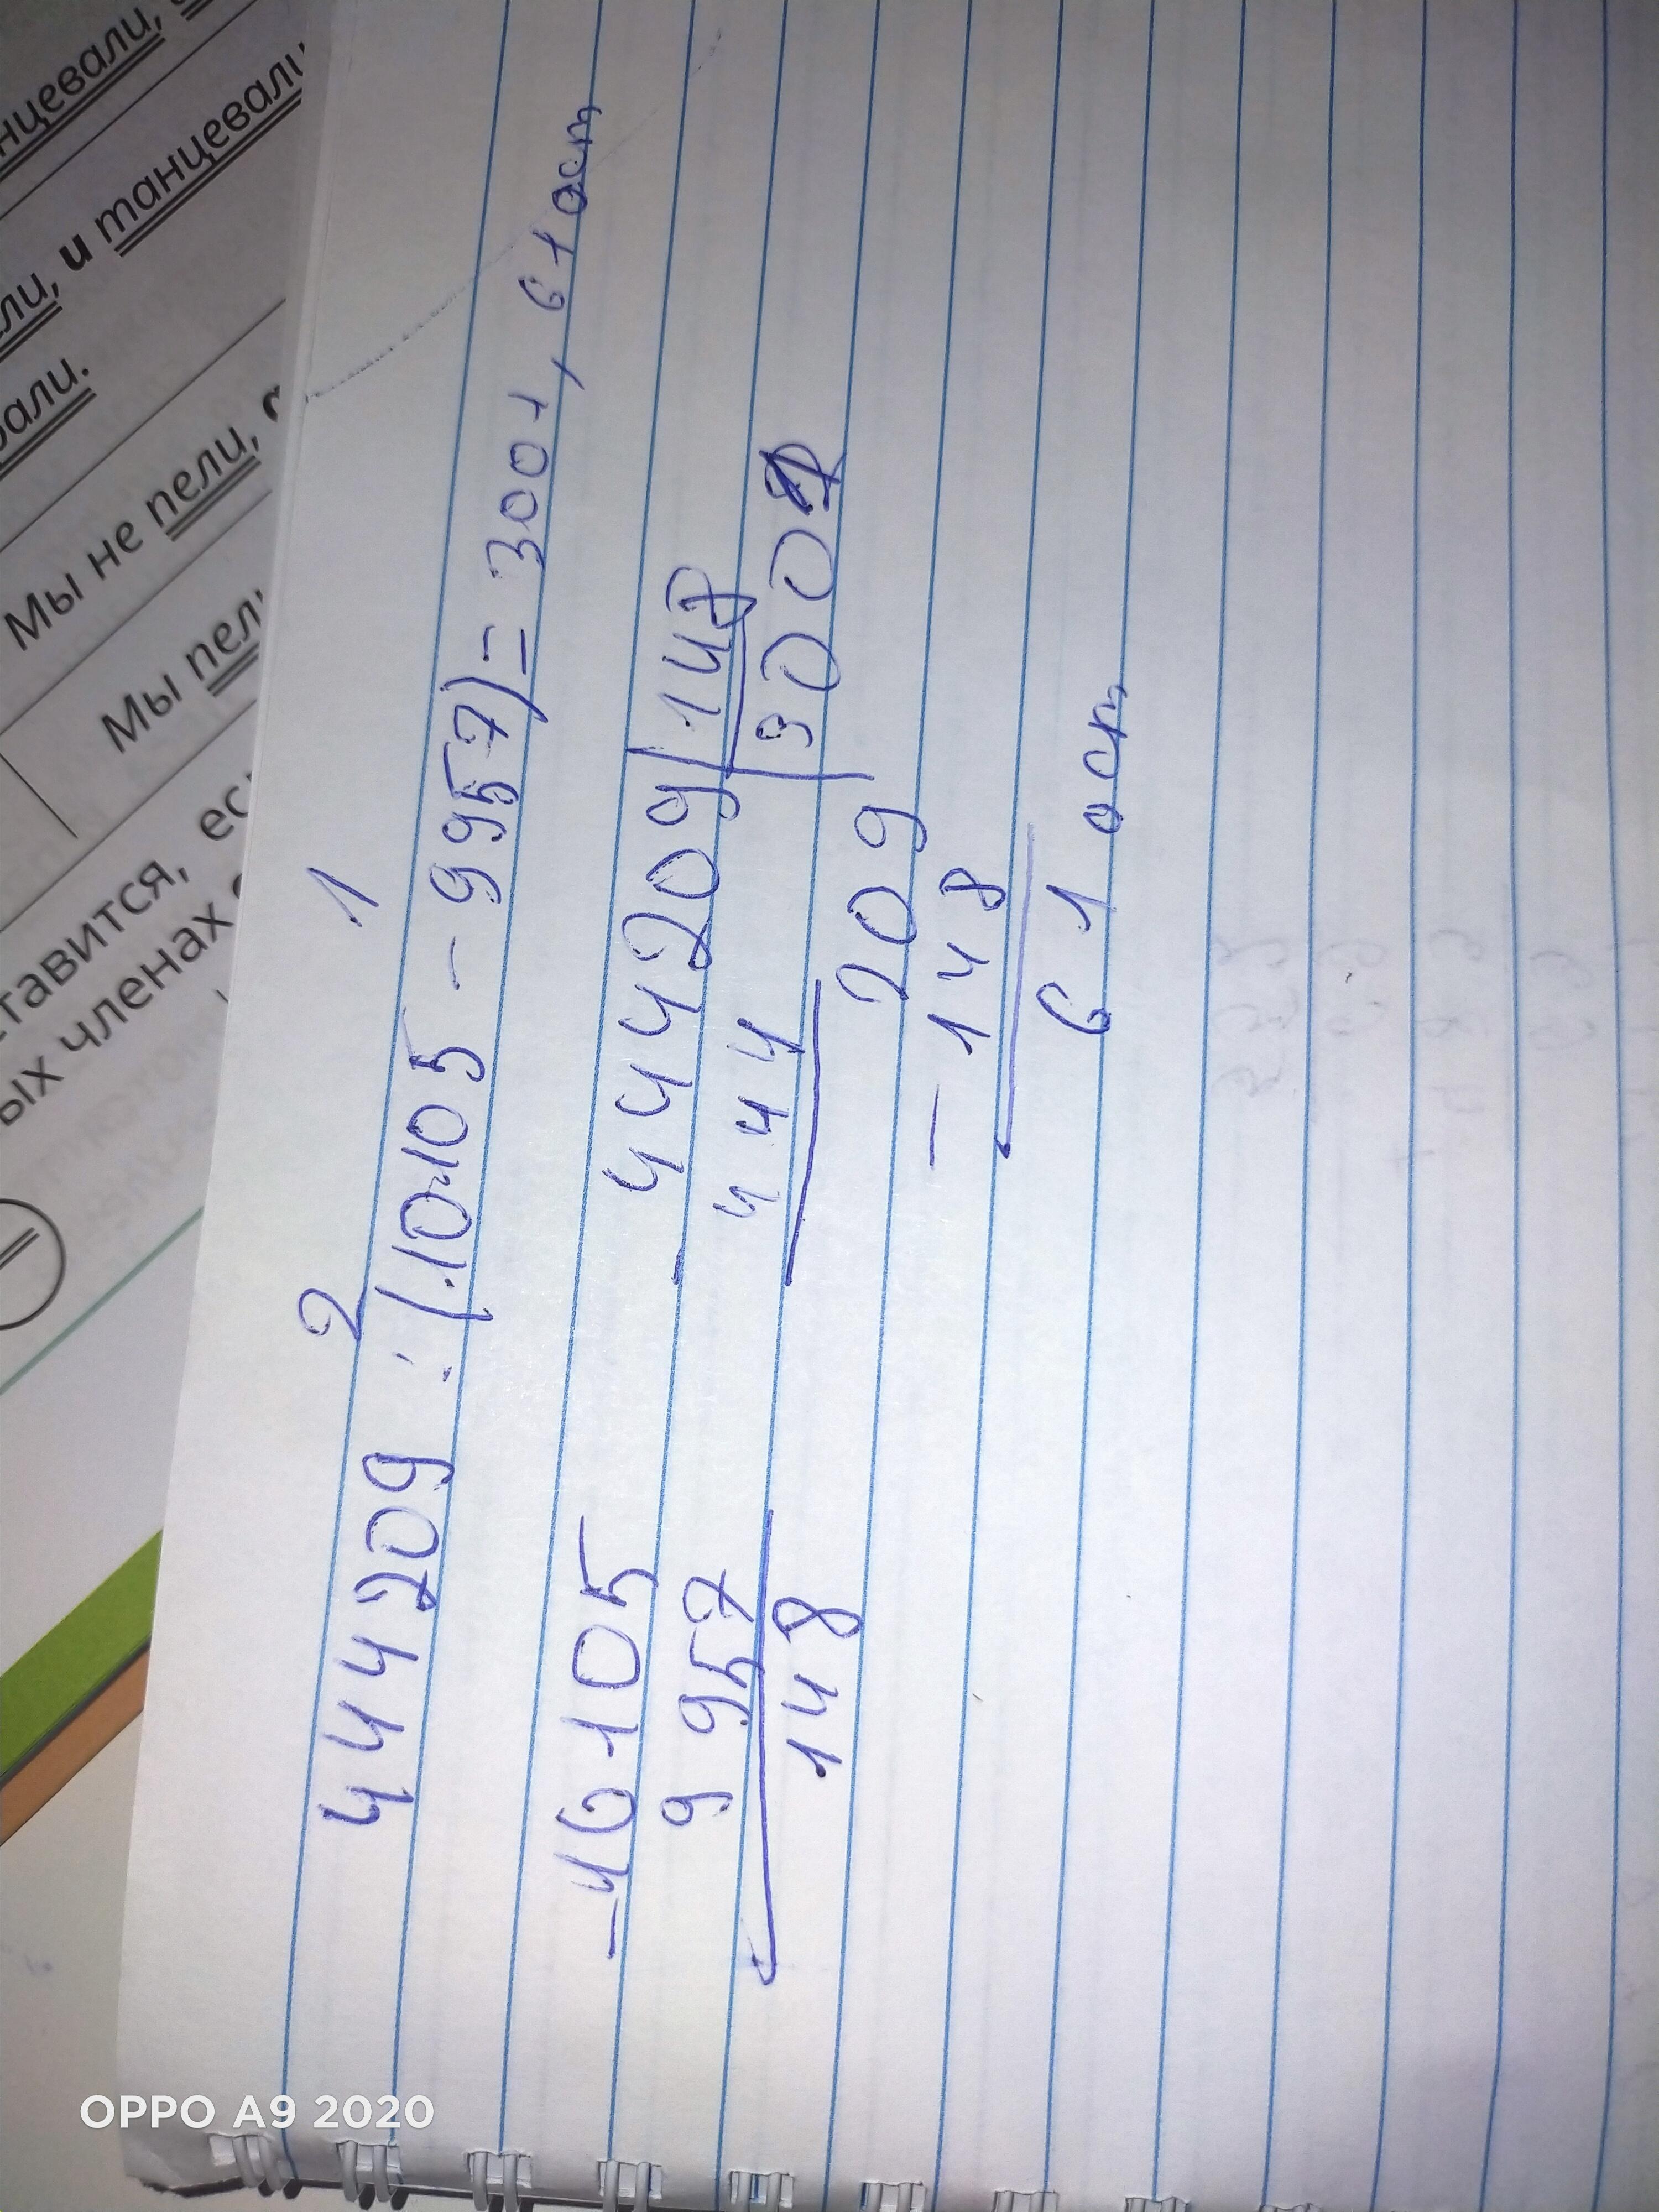 нцевали,
ли, и танцевали
рали.
Мы не пели,
Мы пели
ставится, ес
ых членах
2 1
444209 : (10105 - 9957) = 3001, 61 ост
- 10105
9957
148
- 444209 | 148
444 3001
209
- 148
61 ост
OPPO A9 2020